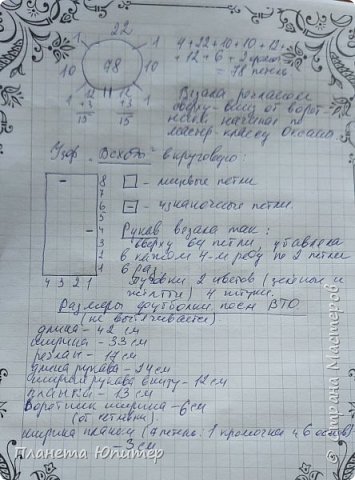 22
1 1
10 78 10
1 12 12 1
+3 +3
15 15
4+22+10+10+12+
+12+6+2
=78 петель
Вязала регланом
сверху-вниз от ворот-
ника, начиная по
мастер-классу Оксаны
Узор "Восход" вкруговую:
8
7
6
5
4
3
2
1
4 3 2 1
- лицевые петли
- изнаночные петли.
Рукав вязала так:
сверху 64 петли, убавляла
в каждом 4-м ряду по 2 петли
6 раз.
Пуговки 2 цветов (зелёные и
жёлтые) 4 штуки.
Размеры футболки после ВТО
(не вытягивается)
длина - 42 см
ширина - 33 см
реглан - 17 см
длина рукава - 14 см
ширина рукава внизу - 12 см
планки - 13 см
воротник ширина - 6 см
ширина планки (7 петель: 1 кромочная и 6 основ)
- 3 см
Планета Юпитер
© Страна Мастеров